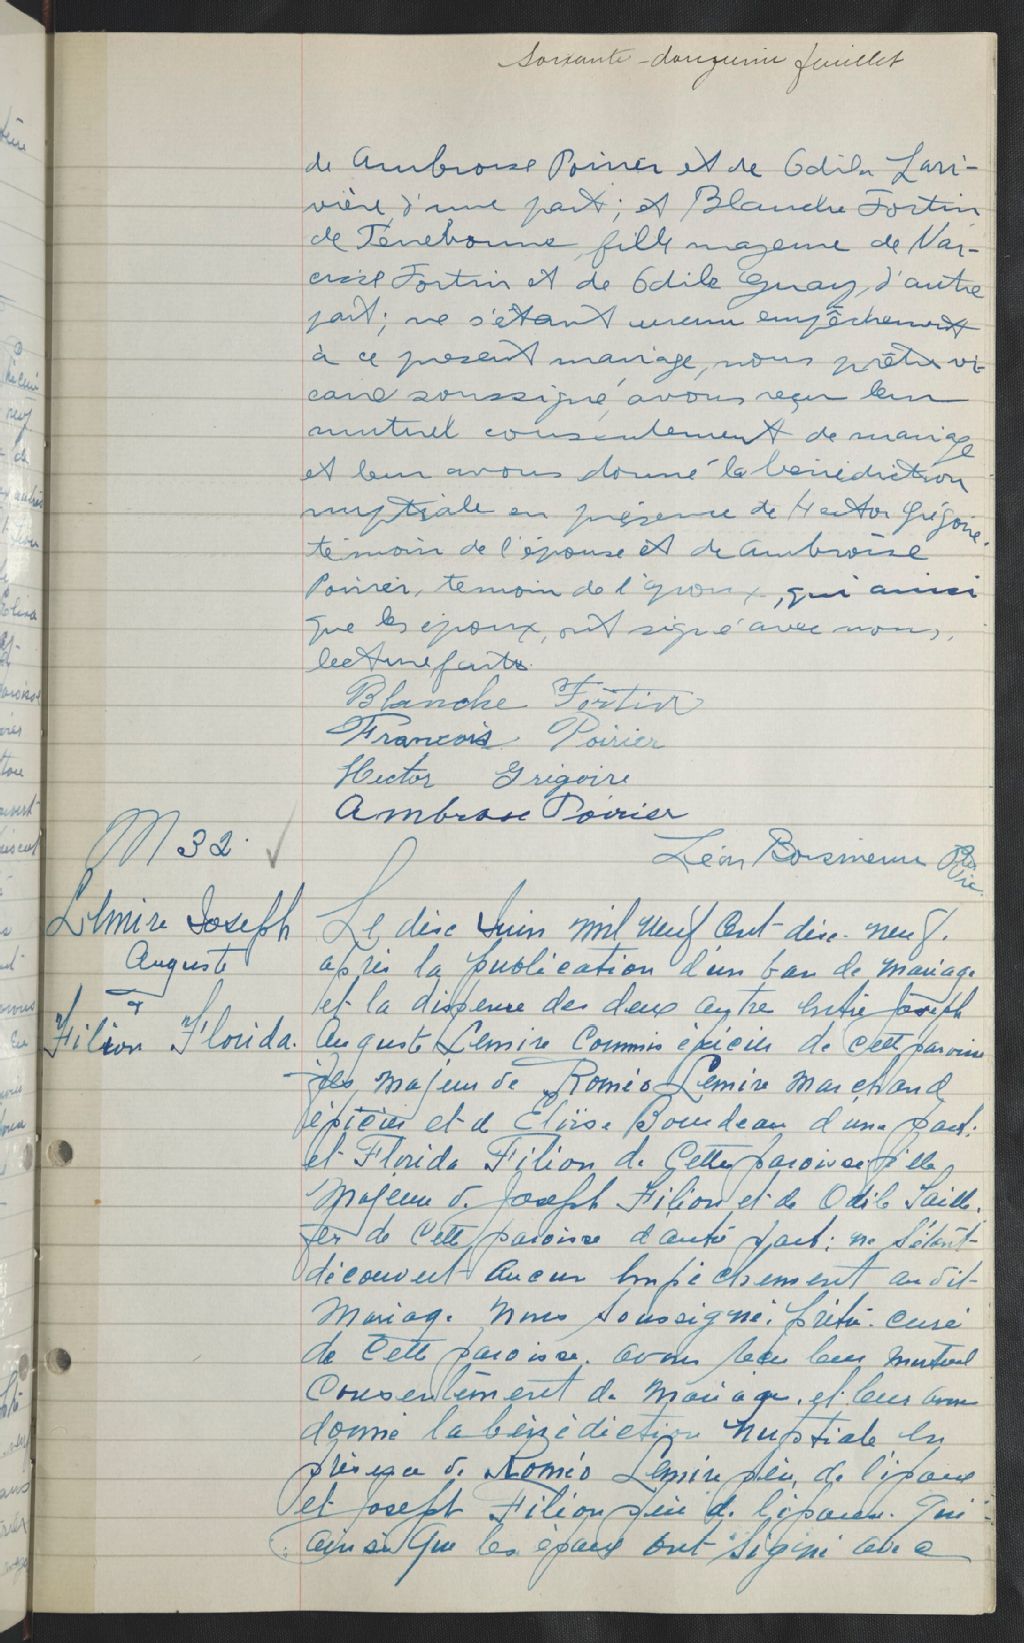 Soixante-douzième feuillet
de Ambroise Poirier et de Odila Lari-
vière, d'une part; et Blanche Fortin
de Terrebonne, fille majeure de Nar-
cisse Fortin et de Odile Guay, d'autre
part; ne s'étant aucun empêchement
à ce présent mariage, nous prêtre vi-
caire soussigné, avons reçu leur
mutuel consentement de mariage
et leur avons donné la bénédiction
nuptiale en présence de Hector Grégoire,
témoin de l'épouse et de Ambroise
Poirier, témoin de l'époux, qui ainsi
que les époux, ont signé avec nous,
lecture faite.
Blanche Fortin
François Poirier
Hector Grégoire
Ambroise Poirier
Léon Ptre Vic.
M 32.
Lemire Joseph
Auguste
&
Filion Florida.
Le dix Juin mil neuf cent dix-neuf.
après la publication d'un ban de mariage
et la dispense des deux autre entre Joseph
Auguste Lemire Commis épicier de cette paroisse
fils majeur de Roméo Lemire Marchand
épicier et de Eloïse Bourdeau d'une part:
et Florida Filion de Cette paroisse fille
Majeure de Joseph Filion et de Odile Taille-
fer de Cette paroisse d'autre part: ne s'étant
découvert Aucun Empêchement au dit
Mariage. Nous Soussigné. prêtre-curé
de Cette paroisse. avons reçu leur mutuel
Consentement de Mariage. et leur avons
donné la bénédiction Nuptiale en
présence de Roméo Lemire père, de l'époux
et Joseph Filion père de l'épouse. Qui
ainsi que les époux ont signé avec